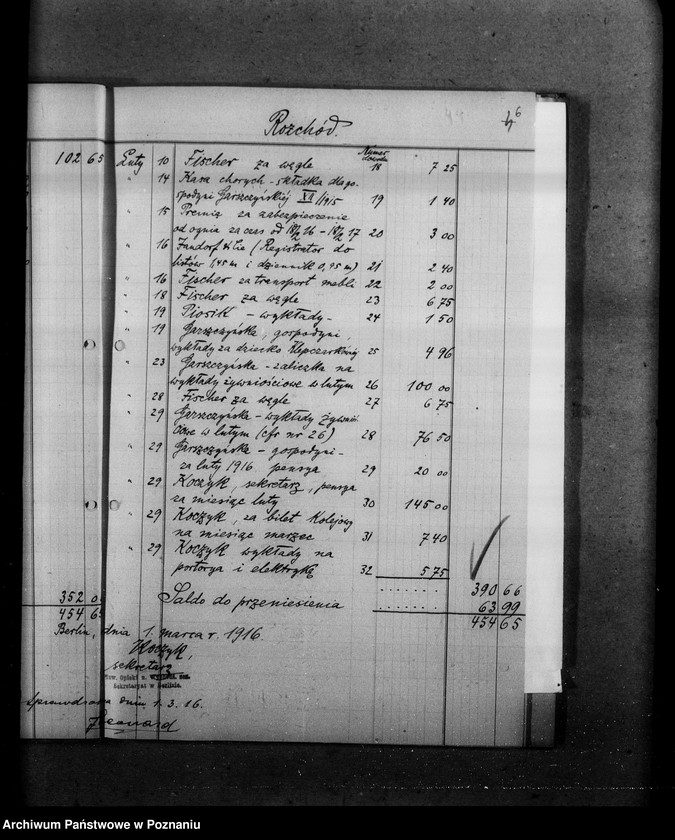 6
Rozchód.
Numer
102 65 Luty 10 Fischer za węgle 18 7 25
" 14 Kasa chorych - składka dla go-
spodyni Garszczyńskiej 19 1 40
" 15 Premia za zabezpieczenie
od ognia za czas od 18/2 16 - 18/2 17 20 3 00
" 16 (Registrator do
listów 1,45 m i dziennik 0,95 m) 21 2 40
" 16 Fischer za transport mebli 22 2 00
" 18 Fischer za węgle 23 6 75
" 19 Piosik - wykłady - 24 1 50
" 19 Garszczyńska, gospodyni,
wykłady za dziecko 25 4 96
" 23 Garszczyńska - zaliczka na
wykłady żywnościowe w lutym 26 100 00
" 28 Fischer za węgle 27 6 75
" 29 Garszczyńska - wykłady żywnoś-
ciowe w lutym (cfr nr 26) 28 76 50
" 29 Garszczyńska - gospodyni -
za luty 1916 pensya 29 20 00
" 29 Koczyk, sekretarz, pensya
za miesiąc luty 30 145 00
" 29 Koczyk, za bilet kolejowy
na miesiąc marzec 31 7 40
" 29 Koczyk wykłady na
portorya i elektrykę 32 5 75
352 0 390 66
Saldo do przeniesienia 63 99
454 65 454 65
Berlin, dnia 1. marca r. 1916.
Koczyk,
sekretarz
Tow. Opieki n.
Sekretaryat w Berlinie.
Sprawdzono dnia 1. 3. 16.
Archiwum Państwowe w Poznaniu